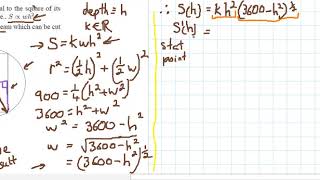 al to the square of its
e.. S ∝ wh²
eam which can be cut
depth = h
k ∈ R
→ S = kwh²
r² = (½h)² + (½w)²
900 = ¼(h² + w²)
3600 = h² + w²
w² = 3600 - h²
w = √3600 - h²
= (3600 - h²)^½
ne
subt
∴ S(h) = kh²(3600 - h²)^½
S'(h) =
stat
point